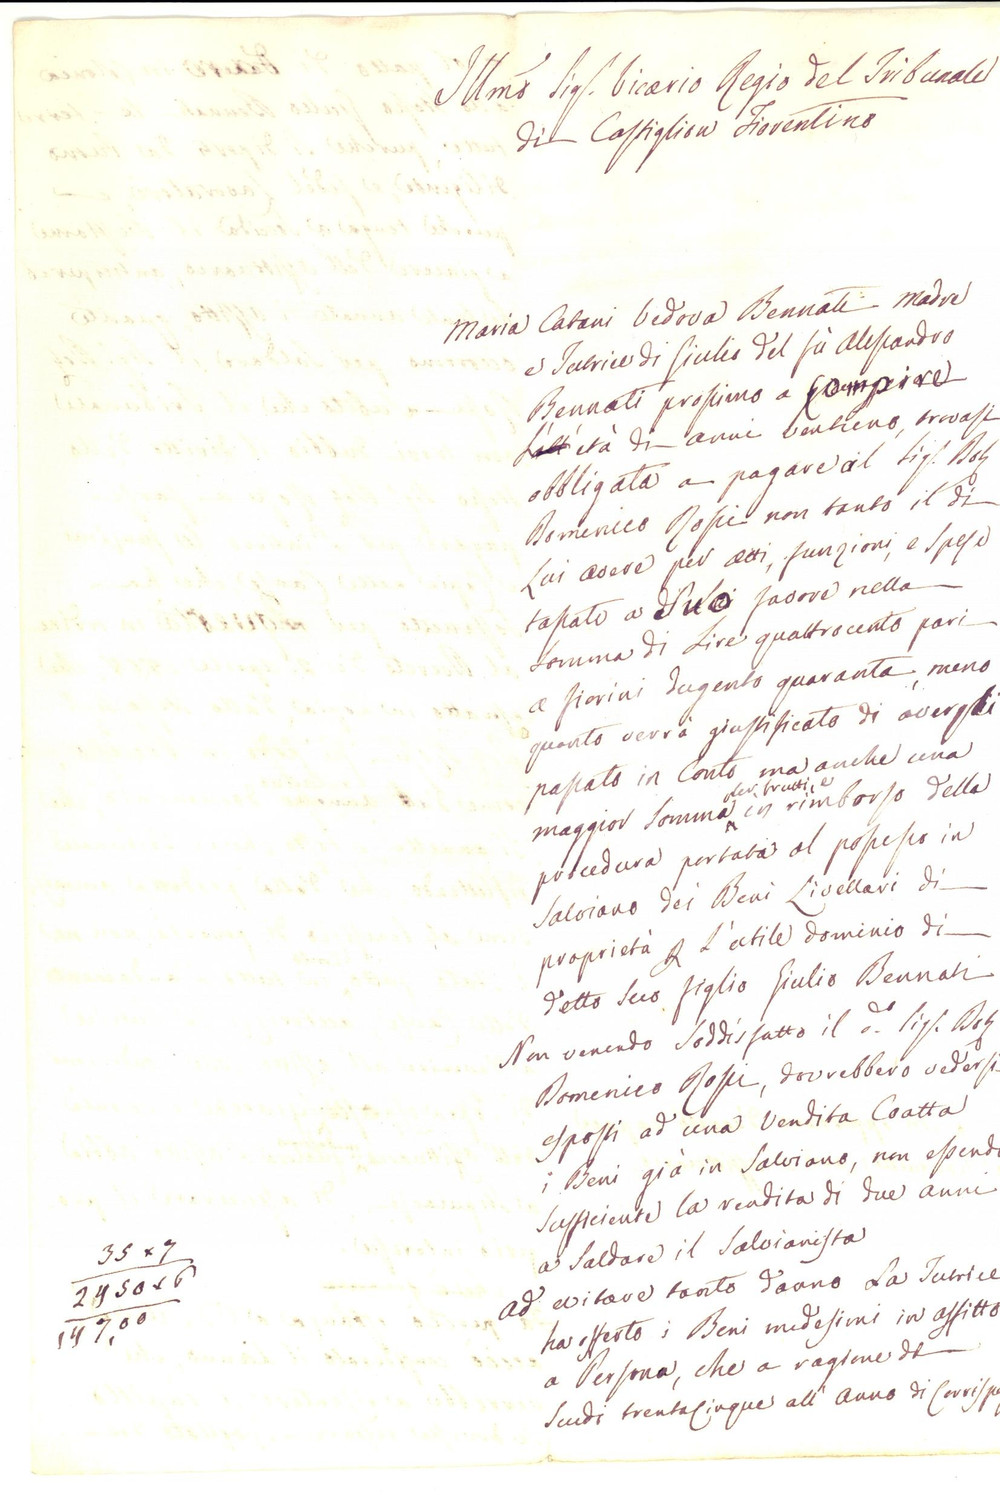 Illmo Sigr. Vicario Regio del Tribunale
di Castiglion Fiorentino
Maria Catani Vedova Bennati Madre
e Tutrice di Giulio del fù Alessandro
Bennati prossimo a Compire
L'età di anni ventuno, trovasi
obbligata a pagare al Sigr. Dotr
Domenico Rossi non tanto il di
Lui avere per atti, funzioni, e Spese
tassate a Suo favore nella
Somma di Lire quattrocento pari
a fiorini dugento quaranta, meno
quanto verrà giustificato di avergli
passato in Conto, ma anche una
per frutti, e
maggior Somma in rimborso della
procedura portata al possesso in
Salviano dei Beni Livellari di
proprietà L'utile dominio di
detto Suo figlio Giulio Bennati
Non venendo Soddisfatto il do. Sigr. Dotr
Domenico Rossi, dovrebbero vedersi
esposti ad una Vendita Coatta
i Beni già in Salviano, non essendo
Sufficiente la rendita di due anni
a Saldare il Salvianista
Ad evitare tanto danno La Tutrice
ha offerto i Beni medesimi in affitto
a Persona, che a ragione di
Scudi trentacinque all'anno di Corrisp
35 x 7
2450 x 6
147,00